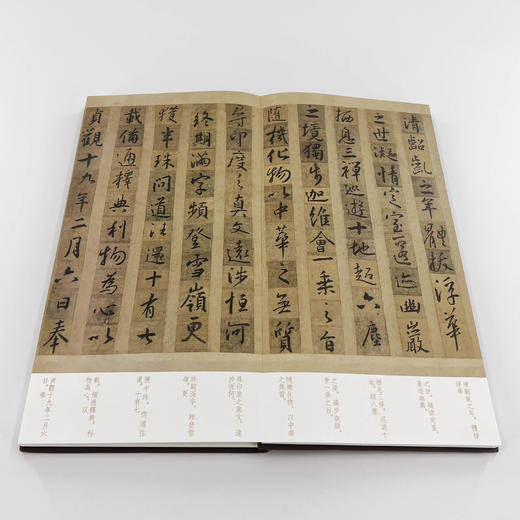 清齠齔之年體拔浮華
之世凝情定室匿迹幽巖
栖息三禪巡遊十地超六塵
之境獨步迦維會一乘之旨
隨機化物以中華之無質
尋印度之真文遠涉恒河
終期滿字頻登雪嶺更
獲半珠問道法還十有七
載備通釋典利物為心以
貞觀十九年二月六日奉
清齠齔之年，體拔
浮華
之世，凝情定室，
匿迹幽巖。
栖息三禪，巡遊十
地。超六塵
之境，獨步迦維。
會一乘之旨，
隨機化物。以中華
之無質，
尋印度之真文。遠
涉恒河，
終期滿字。頻登雪
嶺，更
獲半珠。問道往
還，十有七
載。備通釋典，利
物為心。以
貞觀十九年二月六
日，奉